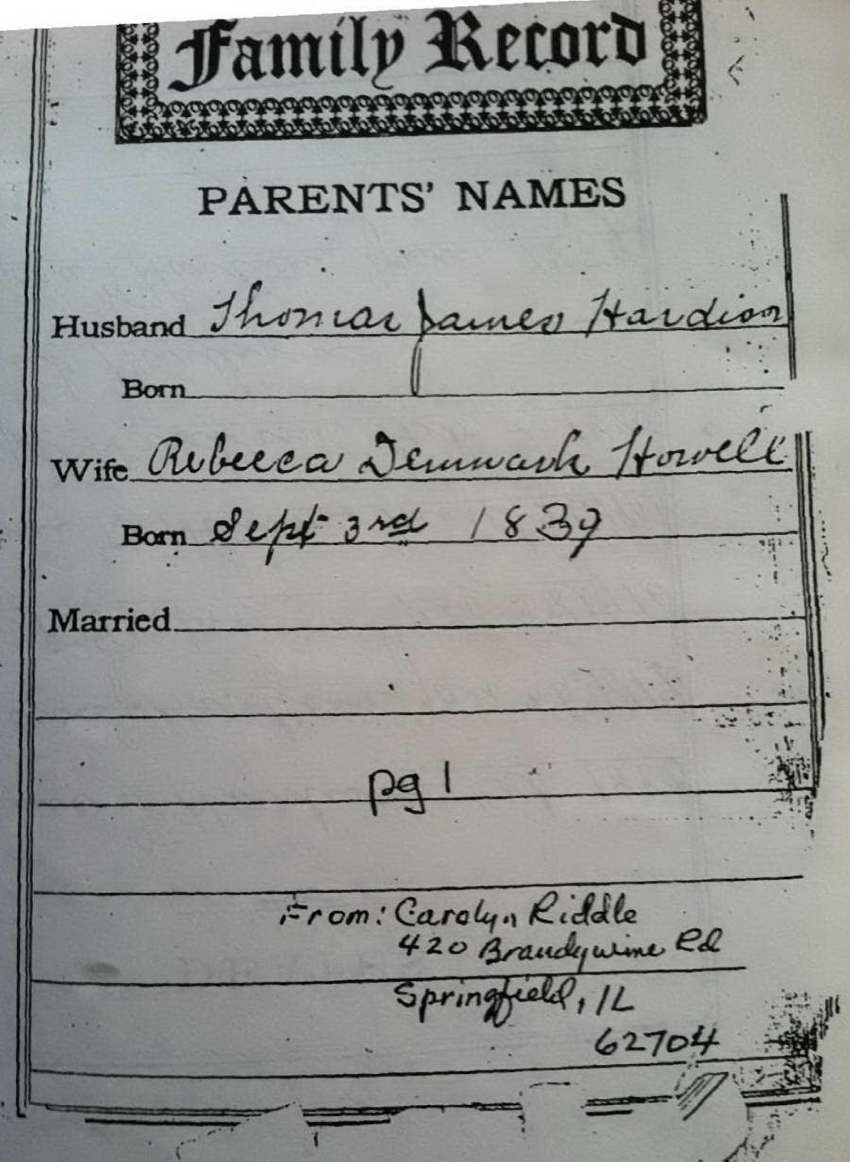 Family Record
PARENTS' NAMES
Husband Thomas James Hardison
Born
Wife Rebecca Denmark Howell
Born Sept 3rd 1839
Married
pg 1
From: Carolyn Riddle
420 Brandywine Rd
Springfield, IL
62704